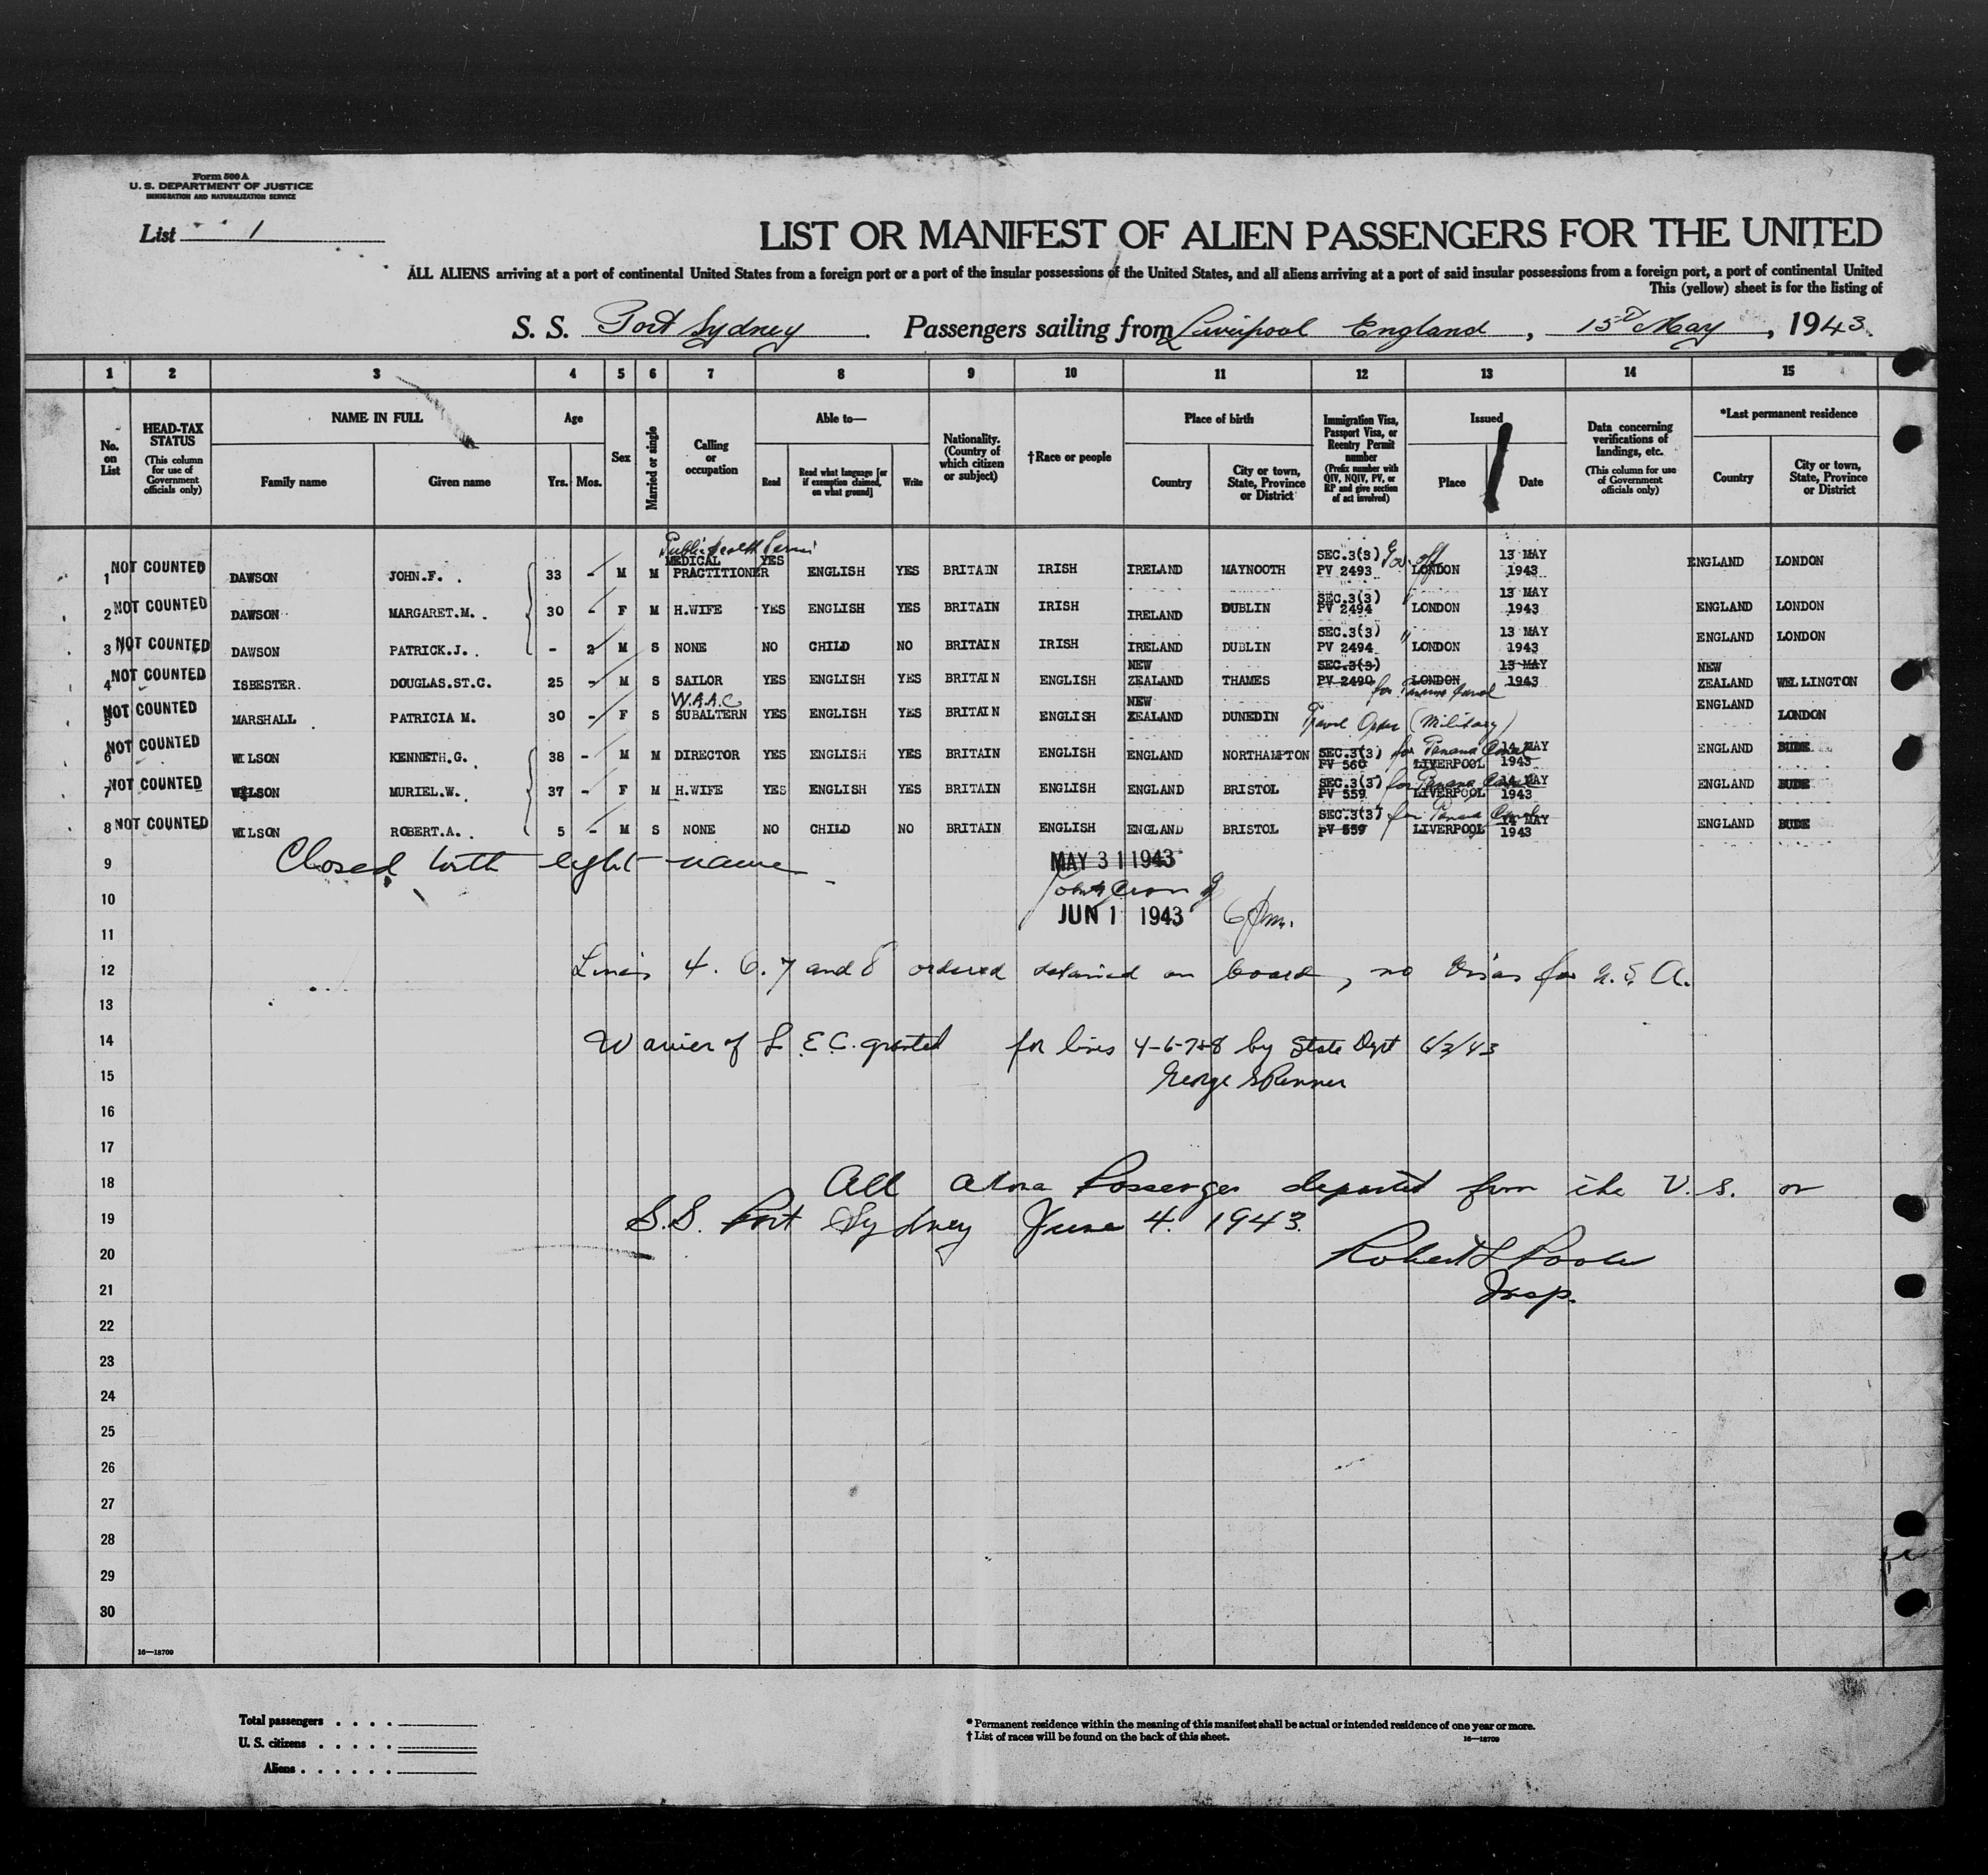 Form 500 A
U. S. DEPARTMENT OF JUSTICE
IMMIGRATION AND NATURALIZATION SERVICE
List 1
LIST OR MANIFEST OF ALIEN PASSENGERS FOR THE UNITED
ALL ALIENS arriving at a port of continental United States from a foreign port or a port of the insular possessions of the United States, and all aliens arriving at a port of said insular possessions from a foreign port, a port of continental United
This (yellow) sheet is for the listing of
S. S. Port Sydney Passengers sailing from Liverpool England, 15th May, 1943.
1 2 3 4 5 6 7 8 9 10 11 12 13 14 15
No. on List
HEAD-TAX STATUS (This column for use of Government officials only)
NAME IN FULL Family name Given name
Age Yrs. Mos.
Sex
Married or single
Calling or occupation
Able to— Read Read what language [or if exemption claimed, on what ground] Write
Nationality. (Country of which citizen or subject)
†Race or people
Place of birth Country City or town, State, Province or District
Immigration Visa, Passport Visa, or Reentry Permit number (Prefix number with QIV, NQIV, PV, or RP and give section of act involved)
Issued Place Date
Data concerning verifications of landings, etc. (This column for use of Government officials only)
*Last permanent residence Country City or town, State, Province or District
Public Health
1 NOT COUNTED DAWSON JOHN.F. 33 - M M MEDICAL PRACTITIONER YES ENGLISH YES BRITAIN IRISH IRELAND MAYNOOTH SEC.3(3) PV 2493 Gov. off LONDON 13 MAY 1943 ENGLAND LONDON
2 NOT COUNTED DAWSON MARGARET.M. 30 - F M H.WIFE YES ENGLISH YES BRITAIN IRISH IRELAND DUBLIN SEC.3(3) PV 2494 " LONDON 13 MAY 1943 ENGLAND LONDON
3 NOT COUNTED DAWSON PATRICK.J. - 2 M S NONE NO CHILD NO BRITAIN IRISH IRELAND DUBLIN SEC.3(3) PV 2494 " LONDON 13 MAY 1943 ENGLAND LONDON
4 NOT COUNTED ISBESTER. DOUGLAS.ST.C. 25 - M S SAILOR YES ENGLISH YES BRITAIN ENGLISH NEW ZEALAND THAMES SEC.3(3) PV 2490 LONDON 13 MAY 1943 for Panama Canal NEW ZEALAND WELLINGTON
5 NOT COUNTED MARSHALL PATRICIA M. 30 - F S W.A.A.C SUBALTERN YES ENGLISH YES BRITAIN ENGLISH NEW ZEALAND DUNEDIN Travel Order (Military) ENGLAND LONDON
6 NOT COUNTED WILSON KENNETH.G. 38 - M M DIRECTOR YES ENGLISH YES BRITAIN ENGLISH ENGLAND NORTHAMPTON SEC.3(3) PV 560 for Panama Canal LIVERPOOL 14 MAY 1943 ENGLAND BUDE
7 NOT COUNTED WILSON MURIEL.W. 37 - F M H.WIFE YES ENGLISH YES BRITAIN ENGLISH ENGLAND BRISTOL SEC.3(3) PV 559 for Panama Canal LIVERPOOL 14 MAY 1943 ENGLAND BUDE
8 NOT COUNTED WILSON ROBERT.A. 5 - M S NONE NO CHILD NO BRITAIN ENGLISH ENGLAND BRISTOL SEC.3(3) PV 559 for Panama Canal LIVERPOOL 14 MAY 1943 ENGLAND BUDE
9 Closed with eight names MAY 31 1943
10 JUN 1 1943 6 pm.
11
12 Lines 4. 6. 7 and 8 ordered detained on board, no visas for U. S. A.
13
14 Waiver of L. E C. granted for lines 4-6-7&8 by State Dept 6/3/43
15 George S Renner
16
17
18 All alien Passengers departed from the U. S. on
19 S.S. Port Sydney June 4. 1943.
20 Robert L Poole
21 Insp.
22
23
24
25
26
27
28
29
30
16—18709
Total passengers . . . .
U. S. citizens . . . . .
Aliens . . . . . .
* Permanent residence within the meaning of this manifest shall be actual or intended residence of one year or more.
† List of races will be found on the back of this sheet.
16—18709